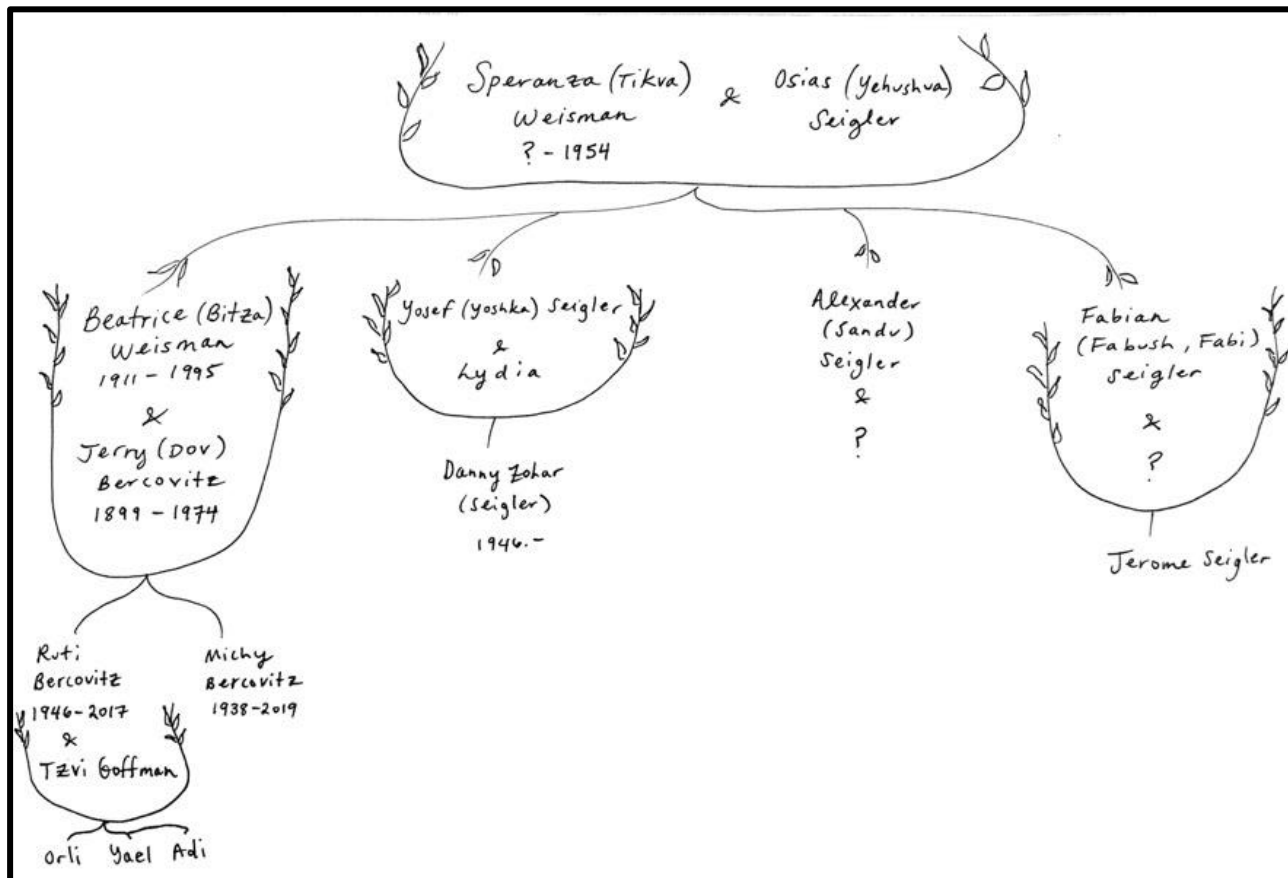 Speranza (Tikva)
Weisman
? - 1954
&
Osias (Yehushua)
Seigler
Beatrice (Bitza)
Weisman
1911 - 1995
&
Jerry (Dov)
Bercovitz
1899 - 1974
Yosef (Yoshka) Seigler
&
Lydia
Danny Zohar
(Seigler)
1946.-
Alexander
(Sandu)
Seigler
&
?
Fabian
(Fabush, Fabi)
Seigler
&
?
Jerome Seigler
Ruti
Bercovitz
1946-2017
&
Tzvi Goffman
Michy
Bercovitz
1938-2019
Orli Yael Adi